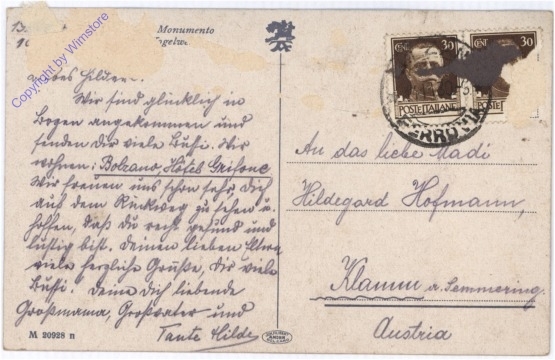 Monumento
Copyright by Wimstore
Wir sind glücklich in
Bozen angekommen und
senden Dir viele Bussi. Wir
wohnen: Bolzano, Hôtel Grifone
Wir freuen uns schon sehr, Dich
auf dem Rückweg zu sehen u.
hoffen, daß Du recht gesund und
lustig bist. Deinen lieben Eltern
viele herzliche Grüße, Dir viele
Bussi. Deine Dich liebende
Großmama, Großvater und
Tante Hilde
M 20928 n
CENT 30
POSTE ITALIANE
CENT 30
POSTE ITAL
FERROVIA
An das liebe Mädi
Hildegard Hofmann,
Klamm a. Semmering.
Austria